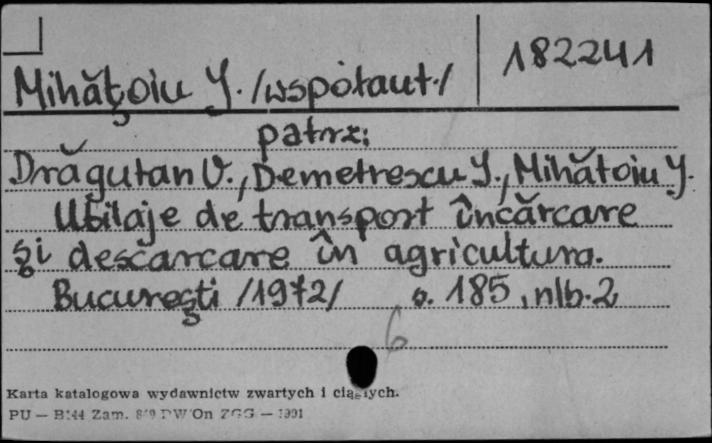 182241
Mihăţoiu Y. /wspołaut./
patrz:
Drăgutan V., Demetrescu Y., Mihătoiu Y.
Utilaje de transport încărcare
şi descarcare în agricultura.
Bucureşti /1972/ s. 185, nlb. 2
6
Karta katalogowa wydawnictw zwartych i ciągłych.
PU — Zam. DW/On ZGG — 1991